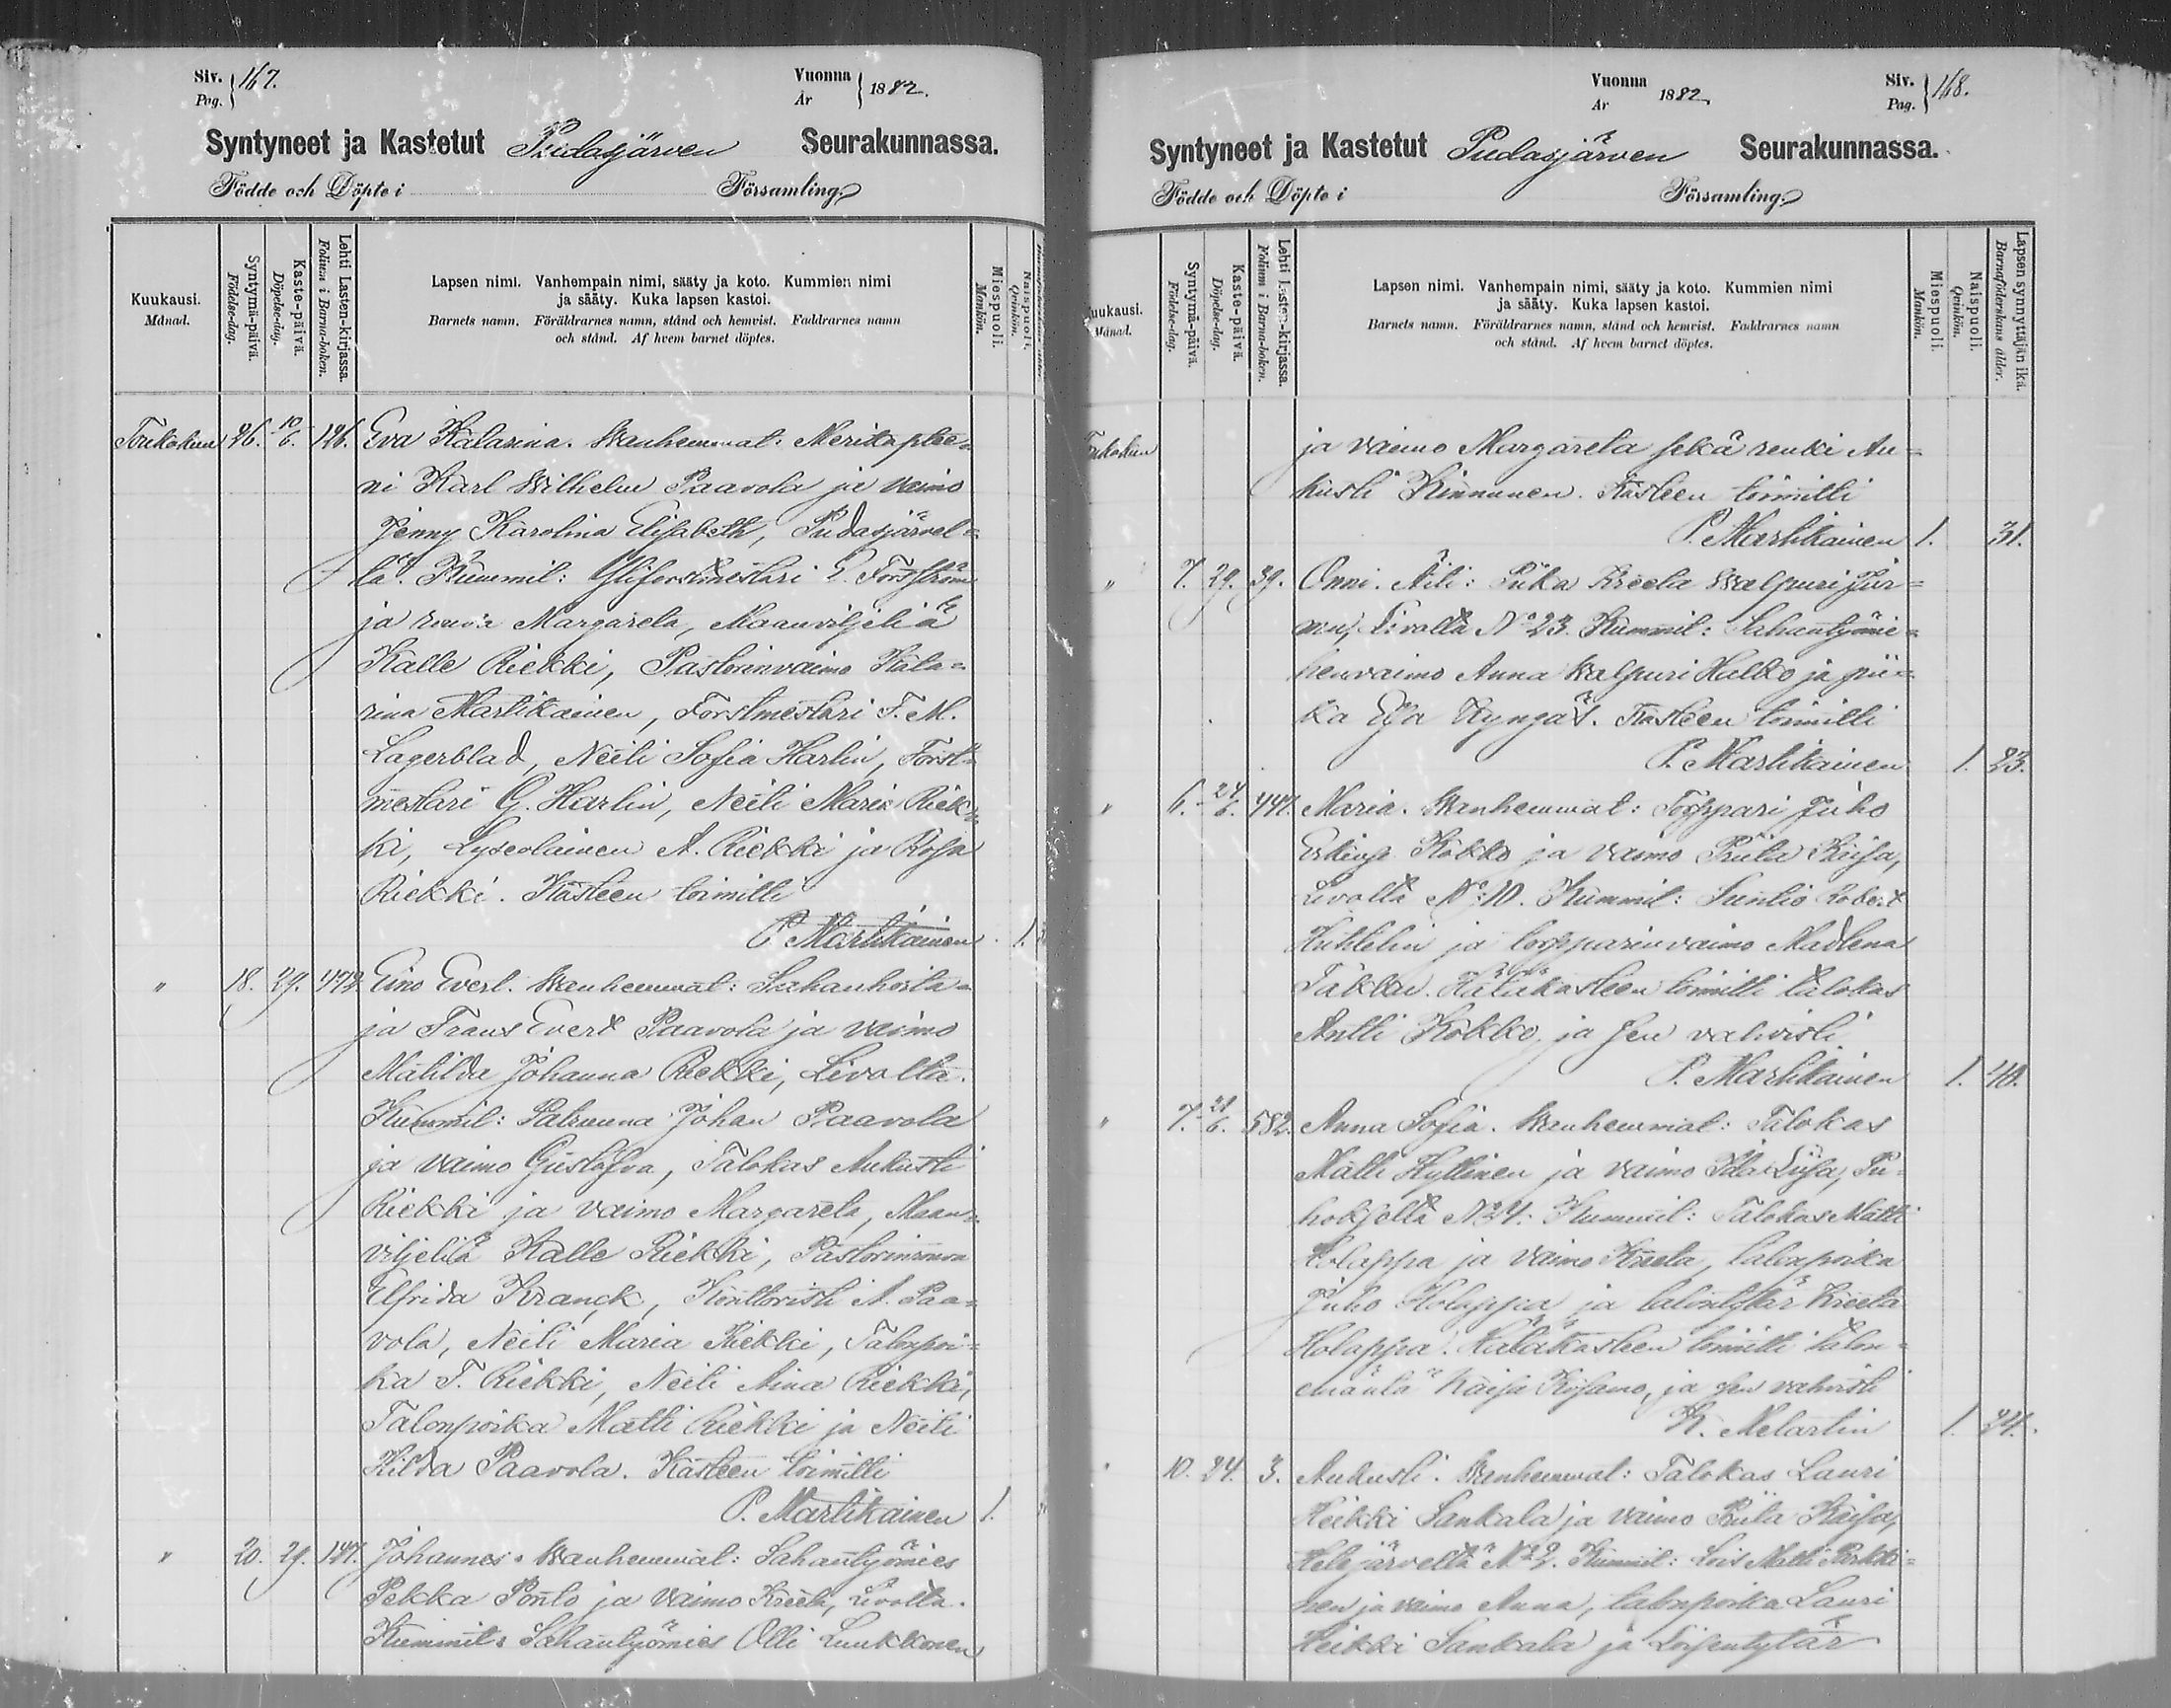 Siv. 167.
Pag.
Vuonna 1882.
År
Syntyneet ja Kastetut Pudasjärven Seurakunnassa.
Födde och Döpte i Församling.
Kuukausi.
Månad.
Syntymä-päivä.
Födelse-dag.
Kaste-päivä.
Döpelse-dag.
Lehti Lasten-kirjassa.
Folium i Barna-boken.
Lapsen nimi. Vanhempain nimi, sääty ja koto. Kummien nimi
ja sääty. Kuka lapsen kastoi.
Barnets namn. Föräldrarnes namn, stånd och hemvist. Faddrarnes namn
och stånd. Af hvem barnet döptes.
Miespuoli.
Mankön.
Naispuoli.
Qvinkön.
Toukokuu 26. 10/6. 126. Eva Katarina. Wanhemmat: Merikaptee-
ni Karl Wilhelm Paavola ja vaimo
Jenny Karolina Elisabeth, Pudasjärvel-
lä. Kummit: Yliforstmestari E. Forsström
ja rouva Margareta, Maanviljeliä
Kalle Riekki, Pastorinvaimo Kata-
rina Martikainen, Forstmestari F. M.
Lagerblad, Neiti Sofia Harlin, Forst-
mestari G. Harlin, Neiti Maria Riek-
ki, Lyseolainen A. Riekki ja Rosa
Riekki. Kasteen toimitti
P. Martikainen 1.
" 18. 29. 472 Eino Evert. Wanhemmat: Sahanhoita-
ja Frans Evert Paavola ja vaimo
Matilda Johanna Riekki, Livolta.
Kummit: Patruuna Johan Paavola
ja vaimo Gustafva, Talokas Aukusti
Riekki ja vaimo Margareta, Maan-
viljeliä Kalle Riekki, Pastorinrouva
Elfrida Kranck, Konttoristi A. Paa-
vola, Neiti Maria Riekki, Talonpoi-
ka F. Riekki, Neiti Aina Riekki,
Talonpoika Matti Riekki ja Neiti
Hilda Paavola. Kasteen toimitti
P. Martikainen 1.
" 20. 29. 147. Johannes. Wanhemmat: Sahantyömies
Pekka Ponto ja vaimo Kreeta, Livolta.
Kummit: Sahantyömies Olli Luukkonen
Vuonna 1882.
År
Siv. 168.
Pag.
Syntyneet ja Kastetut Pudasjärven Seurakunnassa.
Födde och Döpte i Församling.
uukausi.
Månad.
Syntymä-päivä.
Födelse-dag.
Kaste-päivä.
Döpelse-dag.
Lehti Lasten-kirjassa.
Folium i Barna-boken.
Lapsen nimi. Vanhempain nimi, sääty ja koto. Kummien nimi
ja sääty. Kuka lapsen kastoi.
Barnets namn. Föräldrarnes namn, stånd och hemvist. Faddrarnes namn
och stånd. Af hvem barnet döptes.
Miespuoli.
Mankön.
Naispuoli.
Qvinkön.
Lapsen synnyttäjän ikä.
Barnaföderskans ålder.
Toukokuu ja vaimo Margareta sekä renki Au-
kusti Kinnunen. Kasteen toimitti
P. Martikainen 1. 31.
" 7. 29. 39. Onni. Äiti: Piika Kreeta Walpuri Jur-
mu, Livolta No 23. Kummit: Sahantyömie-
henvaimo Anna Walpuri Halko ja pii-
ka Eva Kyngäs. Kasteen toimitti
P. Martikainen 1. 23.
" 6. 24/6. 447. Maria. Wanhemmat: Torppari Juho
Kokko ja vaimo Priita Kaisa,
Livolta No 10. Kummit: Suntio Robert
Huhtelin ja torpparinvaimo Madlena
Hätäkasteen toimitti talokas
Antti Kokko, ja sen vahvisti
P. Martikainen 1. 40.
" 7. 21/6. 582. Anna Sofia. Wanhemmat: Talokas
Matti Hyttinen ja vaimo Ida Liisa, Pu-
hoksella No 4. Kummit: Talokas Matti
Holappa ja vaimo Kreeta, talonpoika
Juho Holappa ja talontytär Kreeta
Holappa. Hätäkasteen toimitti talon-
emäntä Kaisa ja sen vahvisti
K. Melartin 1. 24.
" 10. 24. 3. Aukusti. Wanhemmat: Talokas Lauri
Heikki Sankala ja vaimo Priita Kaisa,
Hetejärveltä No 2. Kummit: Lois Matti Parkki-
nen ja vaimo Anna, talonpoika Lauri
Heikki Sankala ja Loisentytär